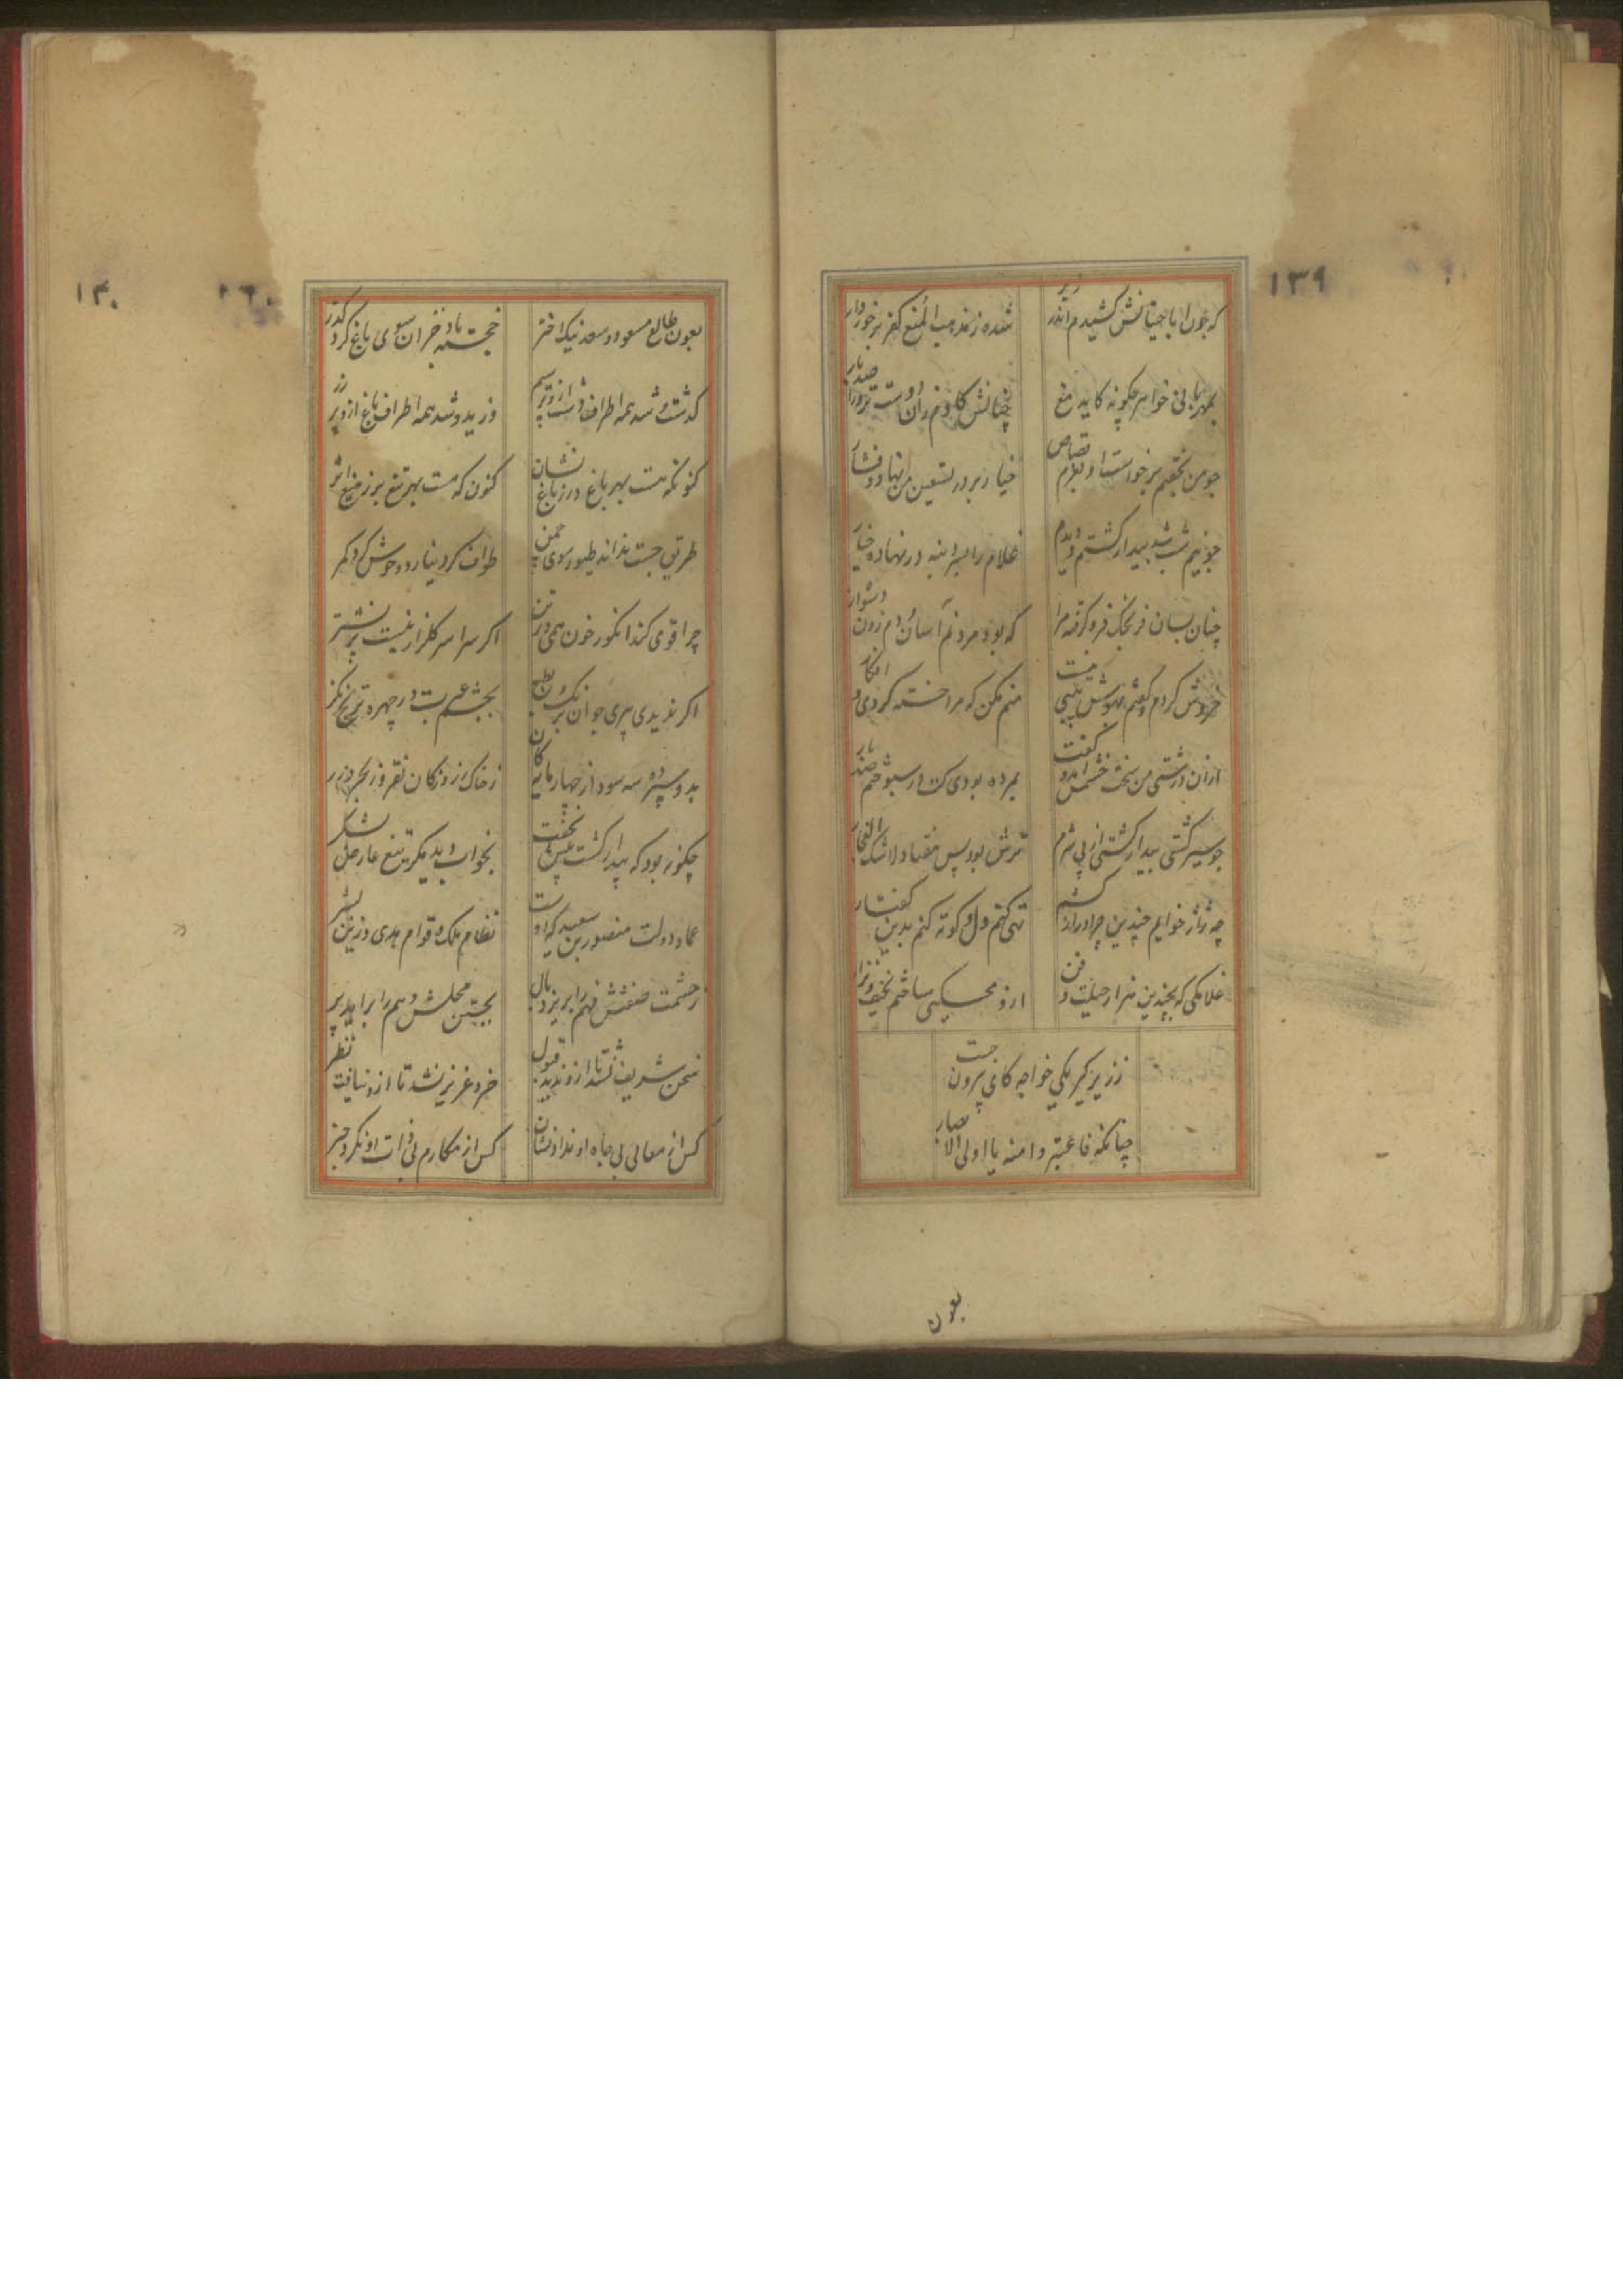 ١٣٩
که چون ابا حیتانش کشیدم اندر زیر
شده ز مذهب المنع کفر برخوردار
بمهربانی خواهر چکونه کاید مغ
چنانش کادم ران دوست تر و را صد بار
چو من بخفتم برخواست او بعزم قصاص
خیار بر در تسعین من نهاد و فشار
چو نیم شب شد بیدار کشتم و دیدم
غلام را سپر دنبه در نهاده خیار
چنان بسان فرنجک فرو کرفته مرا
که بود مردنم آسان و دم زدن دشوار
خروش کردم و کفتم بهوش نیست
منم مکن که مرا خسته کردی و افکار
ازان درشتی من سخت خشمش آمد و کفت
بمرده بودی کت در سبوختم صد بار
چو سیر کشتی بیدار کشتی از پی شرم
ترش بود پس هفتاد لاشک الفجار
چه ژاژ خوایم چندین چرا دراز کشم
تهی کنم دل و کوته کنم بدین کفتار
غلامکی که بچندین هزار حیلت و فن
ازو محسیکی ساختم نحیف و نزار
ز زیر کیر یکی خواجه کانی بیرون جست
چنانکه فاعتبروا منه یا اولی الابصار
بعون
١٣٠
٢٦٠
بعون طالع مسعود و سعد نیک اختر
خجسته باد خزان سوی باغ کرد کذر
کذشت و شد همه اطراف دشت ازو پر سیم
وزید و شد همه اطراف باغ ازو پر زر
کنونکه هست بهر باغ در ز باغ نشان
کنون که هست بهر تیغ بر ز میغ اثر
طریق جست نداند طیور سوی چمن
طواف کرد نیارد وحوش کرد کمر
چرا قوی کند انکور خون همی در تن
اکر سراسر کلزار نیست پر نشتر
اکر ندیدی پیری جوان برنک و بطبع
بچشم عبرت در چهره ترنج نکر
بدو سپرده سه سود از چهار مایه کان
ز خاک رز و ز کان نقره و ز بحر درر
چکونه بود که بیدار کشت عیش و بخفت
بخواب دید مکر تیغ عارض لشکر
عماد دولت منصور بن سعید که اوست
نظام ملک و قوام هدی و زین بشر
ز حشمت صفتش فهم را بریزد بال
بجستن محلش وهم را برآید پر
سخن شریف نشد تا ازو ندید قبول
خرد عزیز نشد تا ازو نیافت نظر
کس از معالی بی جاه او نداد نشان
کس از مکارم بی ذات او نکرد خبر